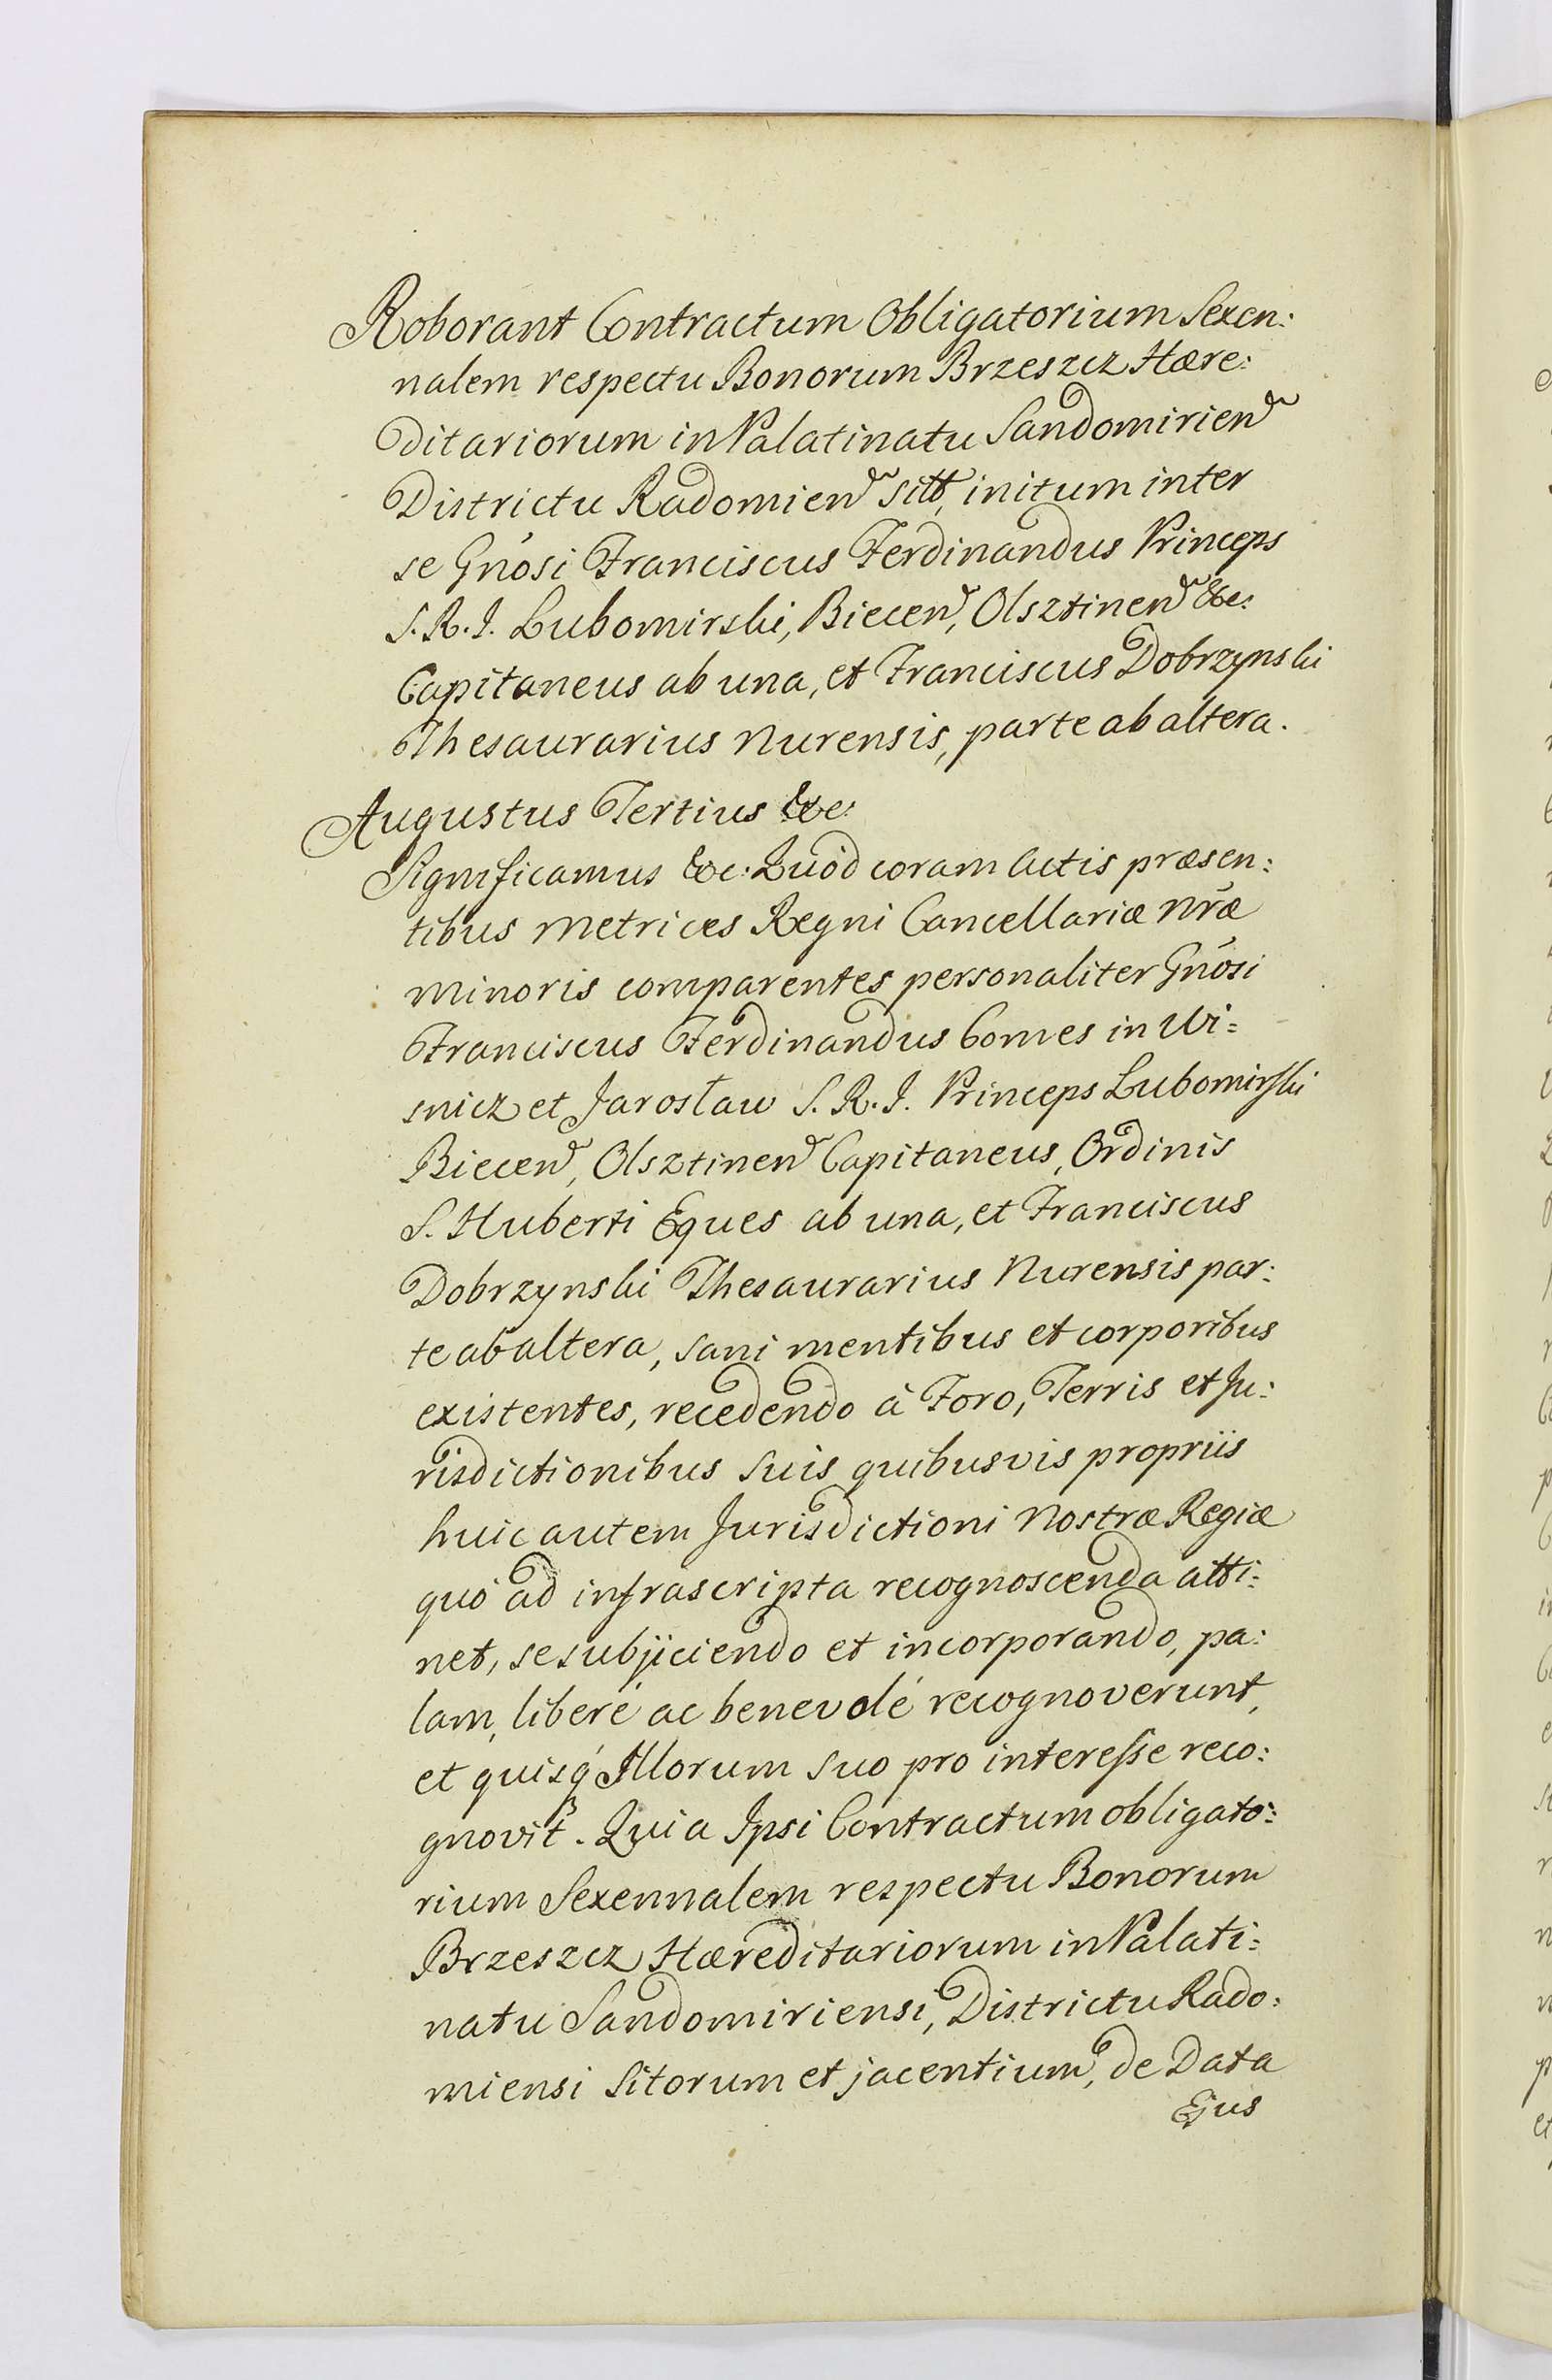 Roborant Contractum Obligatorium Sexen:
nalem respectu Bonorum Brzeszcz Hære:
ditariorum in Palatinatu Sandomirien
Districtu Radomien sitt, initum inter
se Gnosi Franciscus Ferdinandus Princeps
S. R. I. Lubomirski, Biecen, Olsztinen &c:
Capitaneus ab una, et Franciscus Dobrzynski
Thesaurarius Nurensis, parte ab altera.
Augustus Tertius &c:
Significamus &c: Quòd coram Actis præsen:
tibus Metrices Regni Cancellariæ Nræ
Minoris comparentes personaliter Gnosi
Franciscus Ferdinandus Comes in Wi=
snicz et Jarosław S. R. I. Princeps Lubomirski
Biecen, Olsztinen Capitaneus, Ordinis
S. Huberti Eques ab una, et Franciscus
Dobrzynski Thesaurarius Nurensis par:
te ab altera, sani mentibus et corporibus
existentes, recedendo à Foro, Terris et Ju:
risdictionibus suis quibusvis propriis
huic autem Jurisdictioni Nostræ Regiæ
quó ad infrascripta recognoscenda atti:
net, se subjiciendo et incorporando, pa:
lam, liberé ac benevolé recognoverunt,
et quisq́ Illorum suo pro interesse reco:
gnovit. Quia Ipsi Contractum obligato:
rium Sexennalem respectu Bonorum
Brzeszcz Hæreditariorum in Palati:
natu Sandomiriensi, Districtu Rado:
miensi sitorum et jacentium, de Data
Ejus